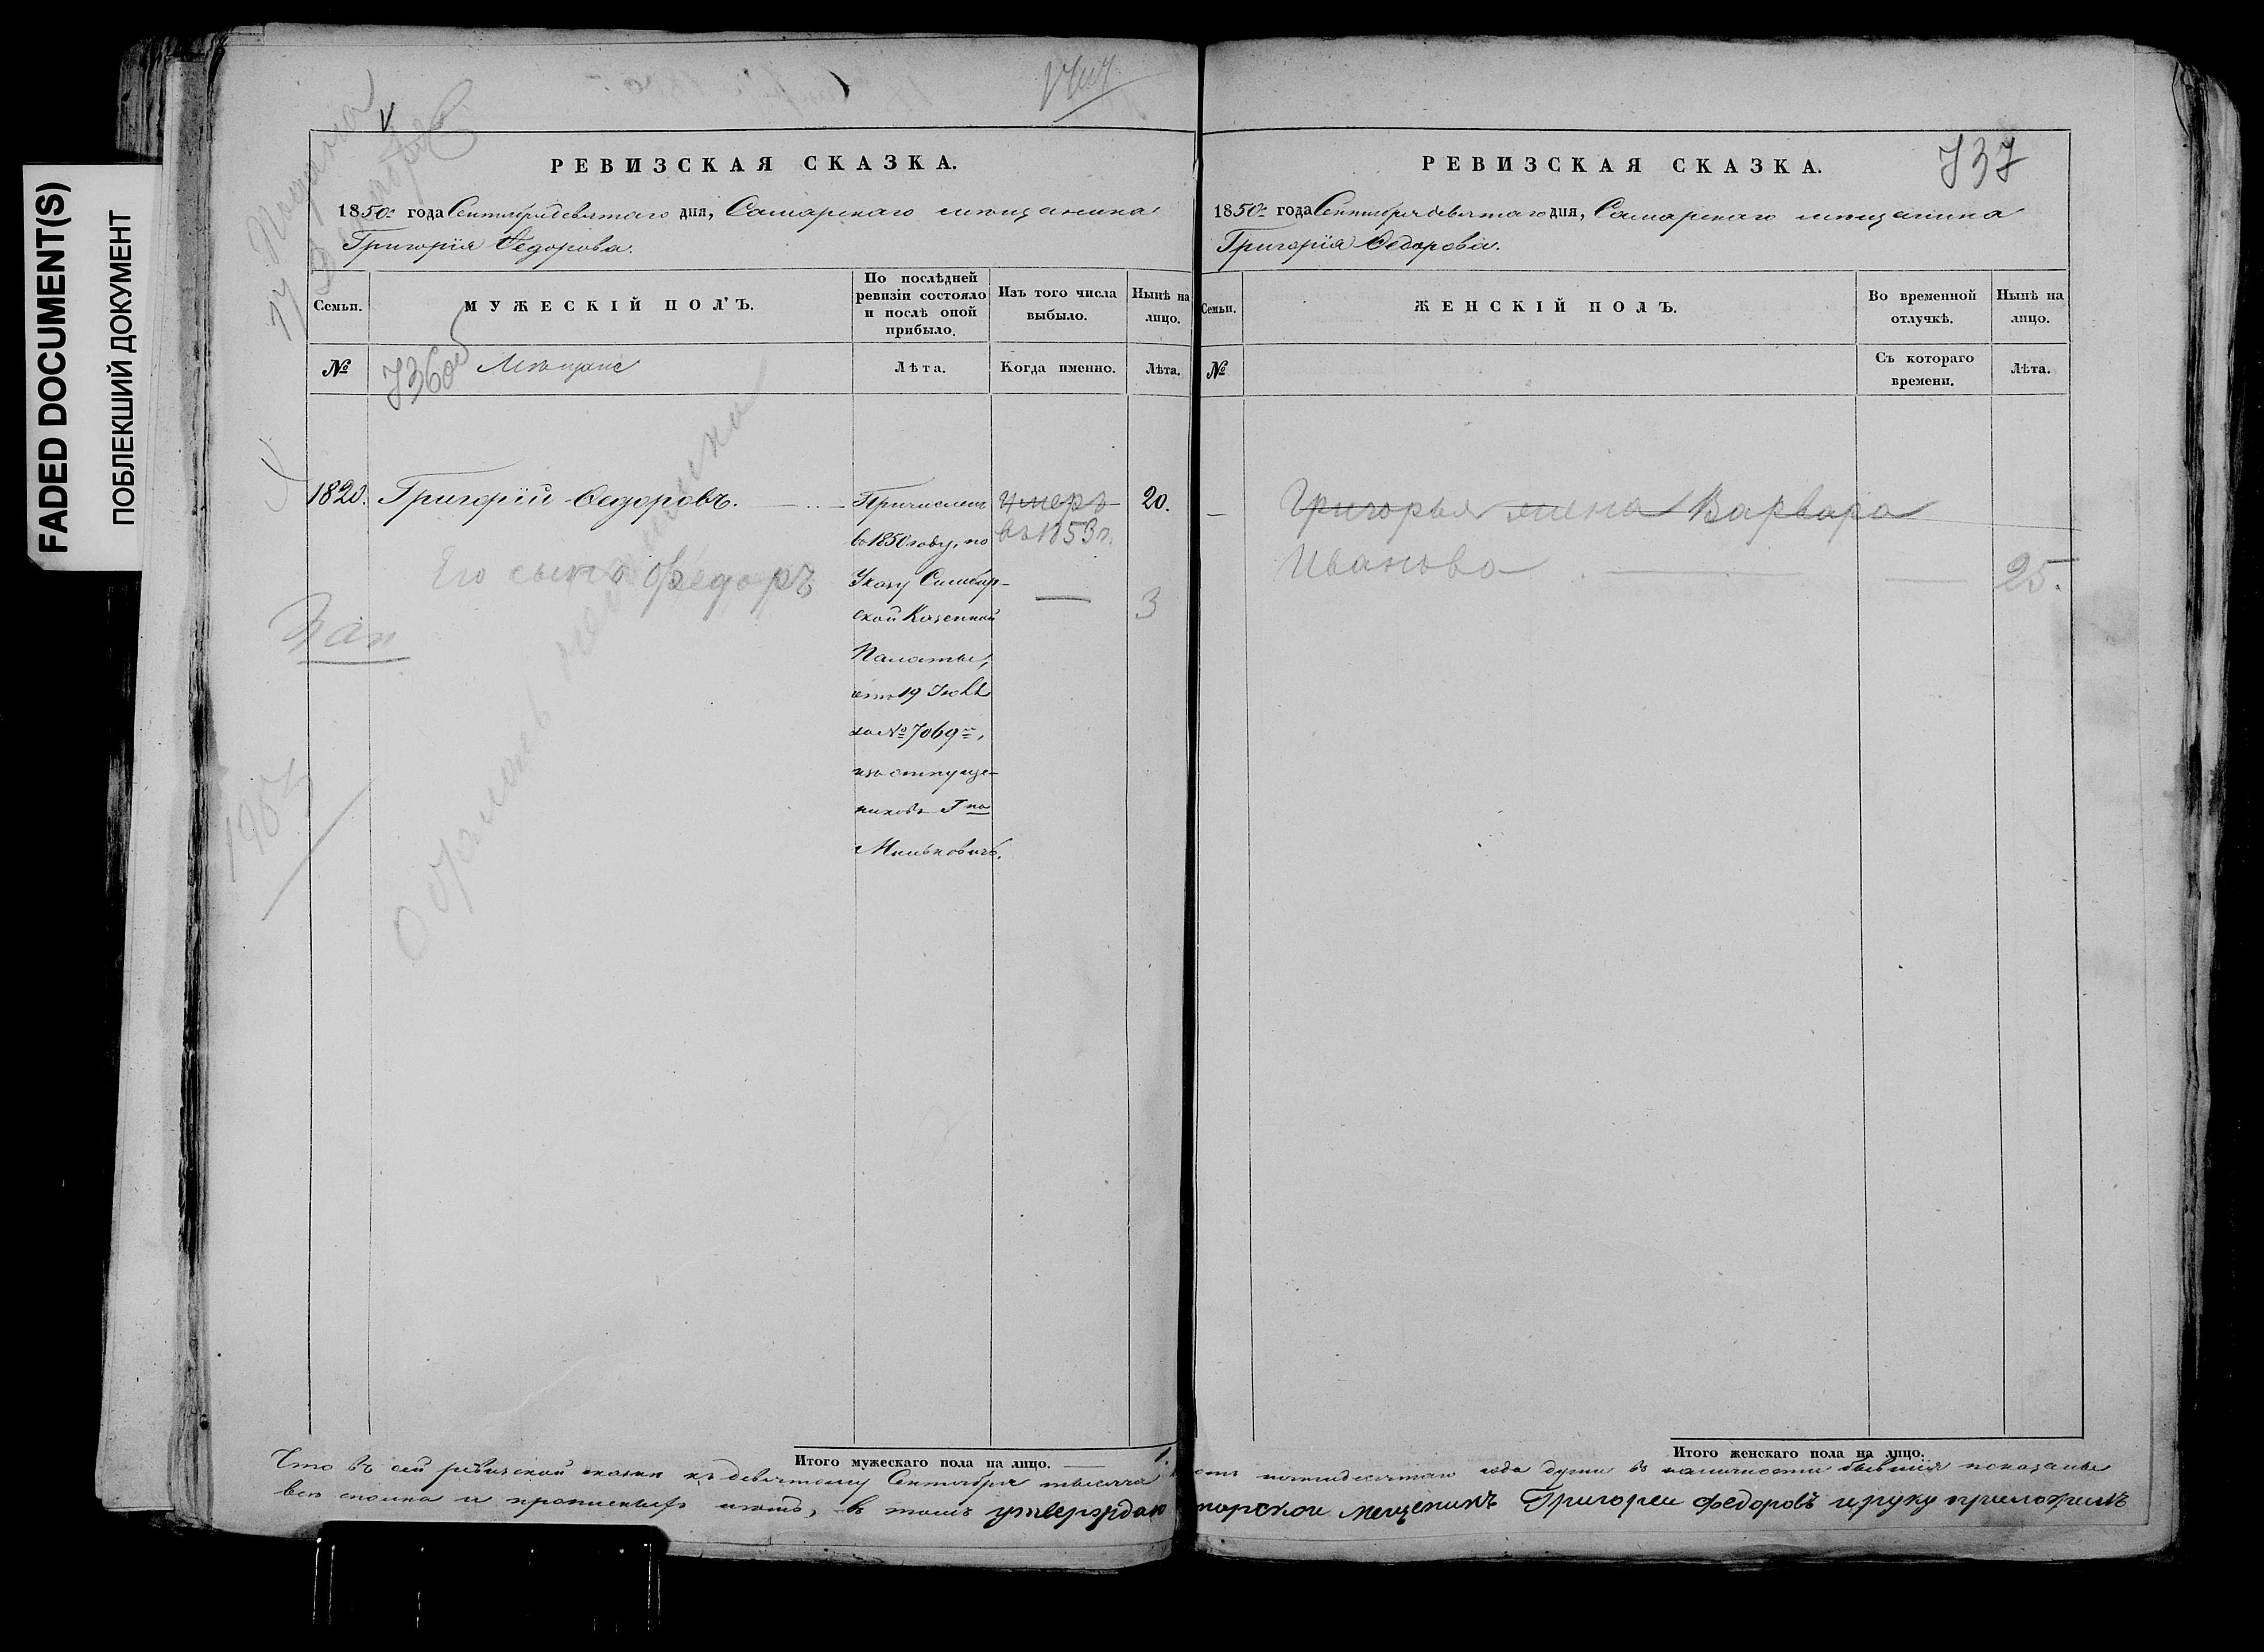 FADED DOCUMENT(S)
ПОБЛЕКШИЙ ДОКУМЕНТ
РЕВИЗСКАЯ СКАЗКА.
1850го года Сентября девятаго дня, Самарскаго мѣщанина
Григорія Ѳедорова.
Семьи.
МУЖЕСКІЙ ПОЛЪ.
По послѣдней ревизіи состояло и послѣ оной прибыло.
Изъ того числа выбыло.
Нынѣ на лицо.
№
736об
Мѣщане
Лѣта.
Когда именно.
Лѣта.
1820.
Григорій Ѳедоровъ.
Причисленъ
въ 1850 году, по
Указу Симбир-
ской Казенной
Палаты,
отъ 19 Іюля
за № 7069мъ,
изъ отпуще-
никовъ Гна
Мильковичъ.
умеръ
въ 1853 г.
20.
Его сынъ Федоръ
—
3
1987
Итого мужескаго пола на лицо. — 1.
РЕВИЗСКАЯ СКАЗКА.
737
1850го года Сентября девятаго дня, Самарскаго мѣщанина
Григорія Ѳедорова.
Семьи.
ЖЕНСКІЙ ПОЛЪ.
Во временной отлучкѣ.
Нынѣ на лицо.
№
Съ котораго времени.
Лѣта.
Григорья жена Варвара
Иванова — — 25.
Итого женскаго пола на лицо.
Что въ сей ревизской сказки къ девятому Сентября тысяча пятидесятаго года души въ наличности бывшія показаны
всѣ сполна и прописныхъ нѣтъ, въ томъ утверждаю Мещенинъ Григореи Федоровъ и руку приложилъ